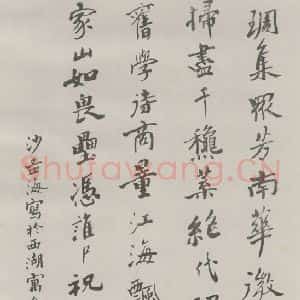 琱集眾芳南華澂
掃盡千穐葉絶代
舊學待商量江海飄
家山如畏壘憑誰尸祝
沙孟海寫於西湖寓
Shufawang.CN